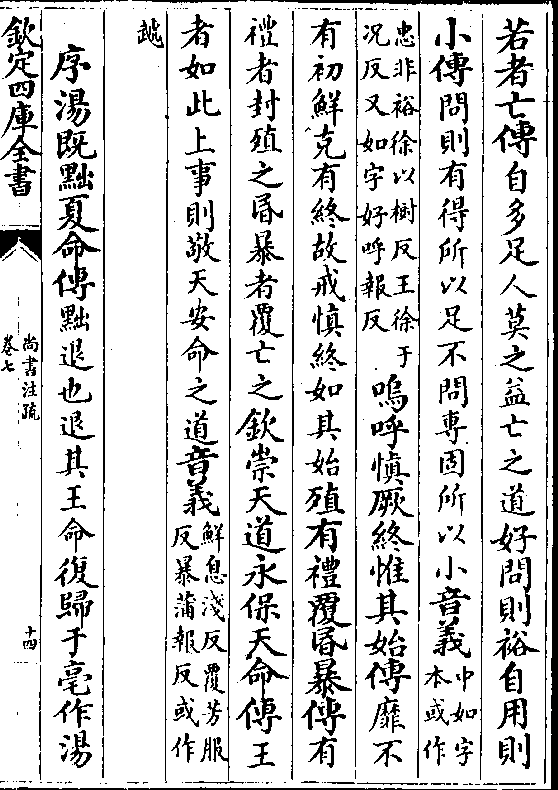 若者亡傳自多足人莫之益亡之道好問則裕自用則
小傳問則有得所以足不問專固所以小音義中如字
本或作
忠非裕徐以樹反王徐于
況反又如字好呼報反
嗚呼慎厥終惟其始傳靡不
有初鮮克有終故戒慎終如其始殖有禮覆昬暴傳有
禮者封殖之昬暴者覆亡之欽崇天道永保天命傳王
者如此上事則敬天安命之道音義鮮息淺反覆芳服
反暴蒲報反或作
虣
序湯既黜夏命傳黜退也退其王命復歸于亳作湯
欽定四庫全書
尚書注疏
卷七
十四